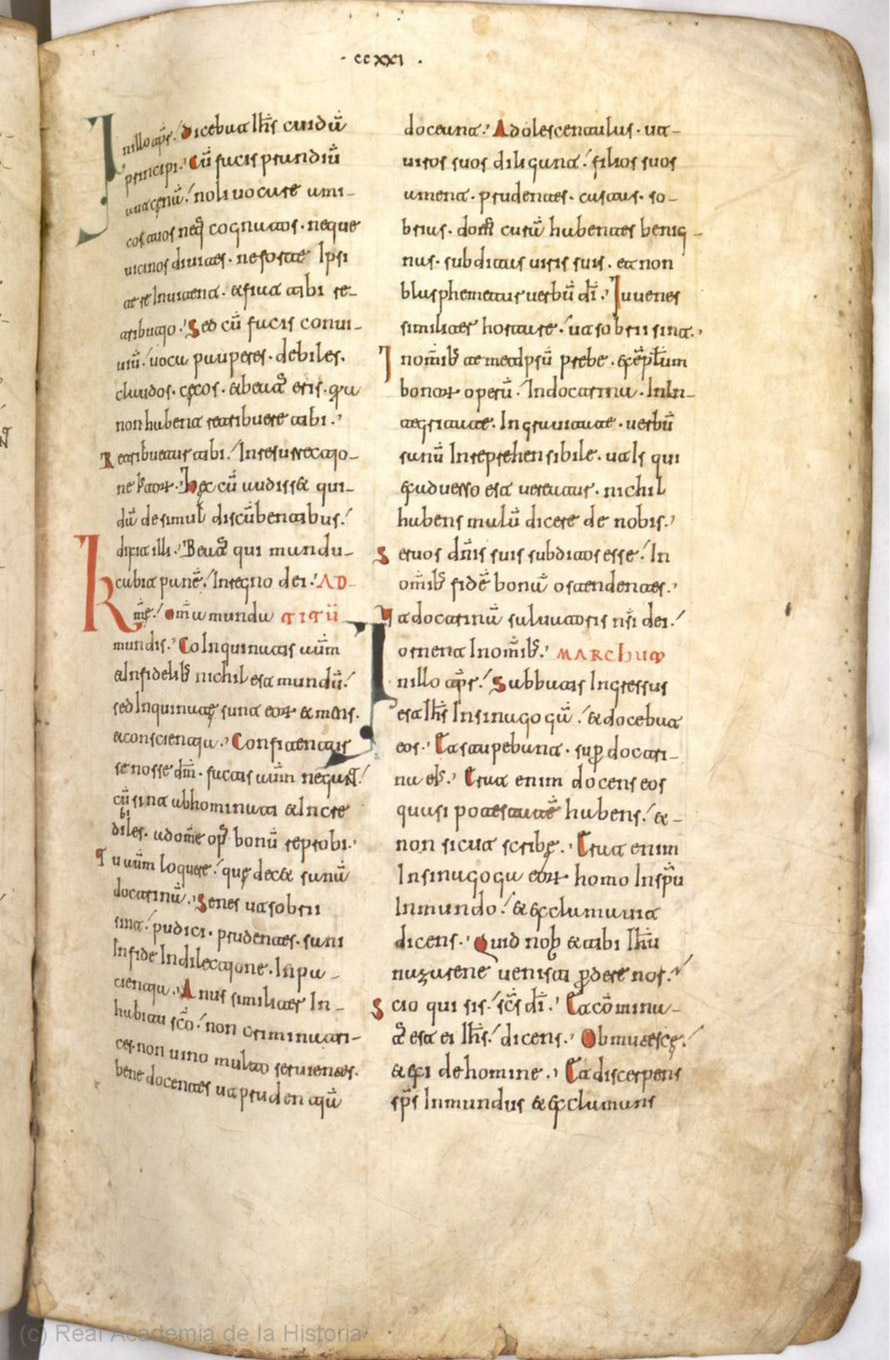 · ccxxi ·
In illo tp̄re. Dicebat Ih̄s cuidā
principi. Cū facis prandiū
aut cenā. noli uocare ami-
cos tuos neq̄ cognatos. neque
uicinos diuites. ne forte ipsi
et te Inuitent. & fiat tibi re-
tributio. Sed cū facis conui-
uiū. uoca pauperes. debiles.
claudos. cęcos. & beatꝰ eris. qia
non habent retribuere tibi.
Retribuetur tibi. In resurrectio-
ne iustor. Hęc cū audisset qui-
dā de simul discūbentibus.
dixit illi. Beatꝰ qui mandu-
cabit panē. In regno dei. AD
Km̄e. omīa munda TITŪ
mundis. Coinquinatis autm̄
& Infidelib; nichil est mundū.
sed Inquinatę sunt eor & mens.
& conscientia. Confitentur
se nosse dm̄. factis autm̄ negant.
cū sint abhominati & Incre
dibiles. ad om̄e opꝰ bonū reprobi.
Tu autm̄ loquere. quę decet sanā
doctrinā. Senes ut sobrii
sint. pudici. prudentes. sani
In fide In dilectione. In pa-
cientia. Anus similiter In
habitu sc̄o. non criminatri-
ces. non uino multo seruientes.
bene docentes ut prudentiā
doceant. Adolescentulas. ut
uiros suos diligant. filios suos
ament. prudentes. castas. so-
brias. dom; curā habentes benig-
nas. subditas uiris suis. et non
blasphemetur uerbū di̅. Iuuenes
similiter hortare. ut sobrii sint.
In om̄ib; te metipsū prebe. exemplum
bonor operū. In doctrina. In In-
tegritate. In grauitate. uerbū
sanū Inreprehensibile. ut Is qui
ex aduerso est uereatur. nichil
habens malū dicere de nobis.
Seruos dn̄is suis subditos esse. In
om̄ib; fidē bonā ostendentes.
Ut doctrinā saluatoris nr̄i dei.
ornent In om̄ib;. MARCHUM
In illo tp̄re. Subbatis Ingressus
est Ih̄s In sinagogā. & docebat
eos. Et stupebant. sup̄ doctri-
na ei;. Erat enim docens eos
quasi potestatē habens. &
non sicut scribę. Erat enim
In sinagoga eor homo In sp̄u
Inmundo. & exclamauit
dicens. Quid nob; & tibi Ih̄u
nazarene uenisti p̄dere nos.
Scio qui sis. sc̄s di̅. Et cōmina-
tꝰ est ei Ih̄s. dicens. Obmutesce.
& exi de homine. Et discerpens
sp̄s Inmundus & exclamans
(c) Real Academia de la Historia